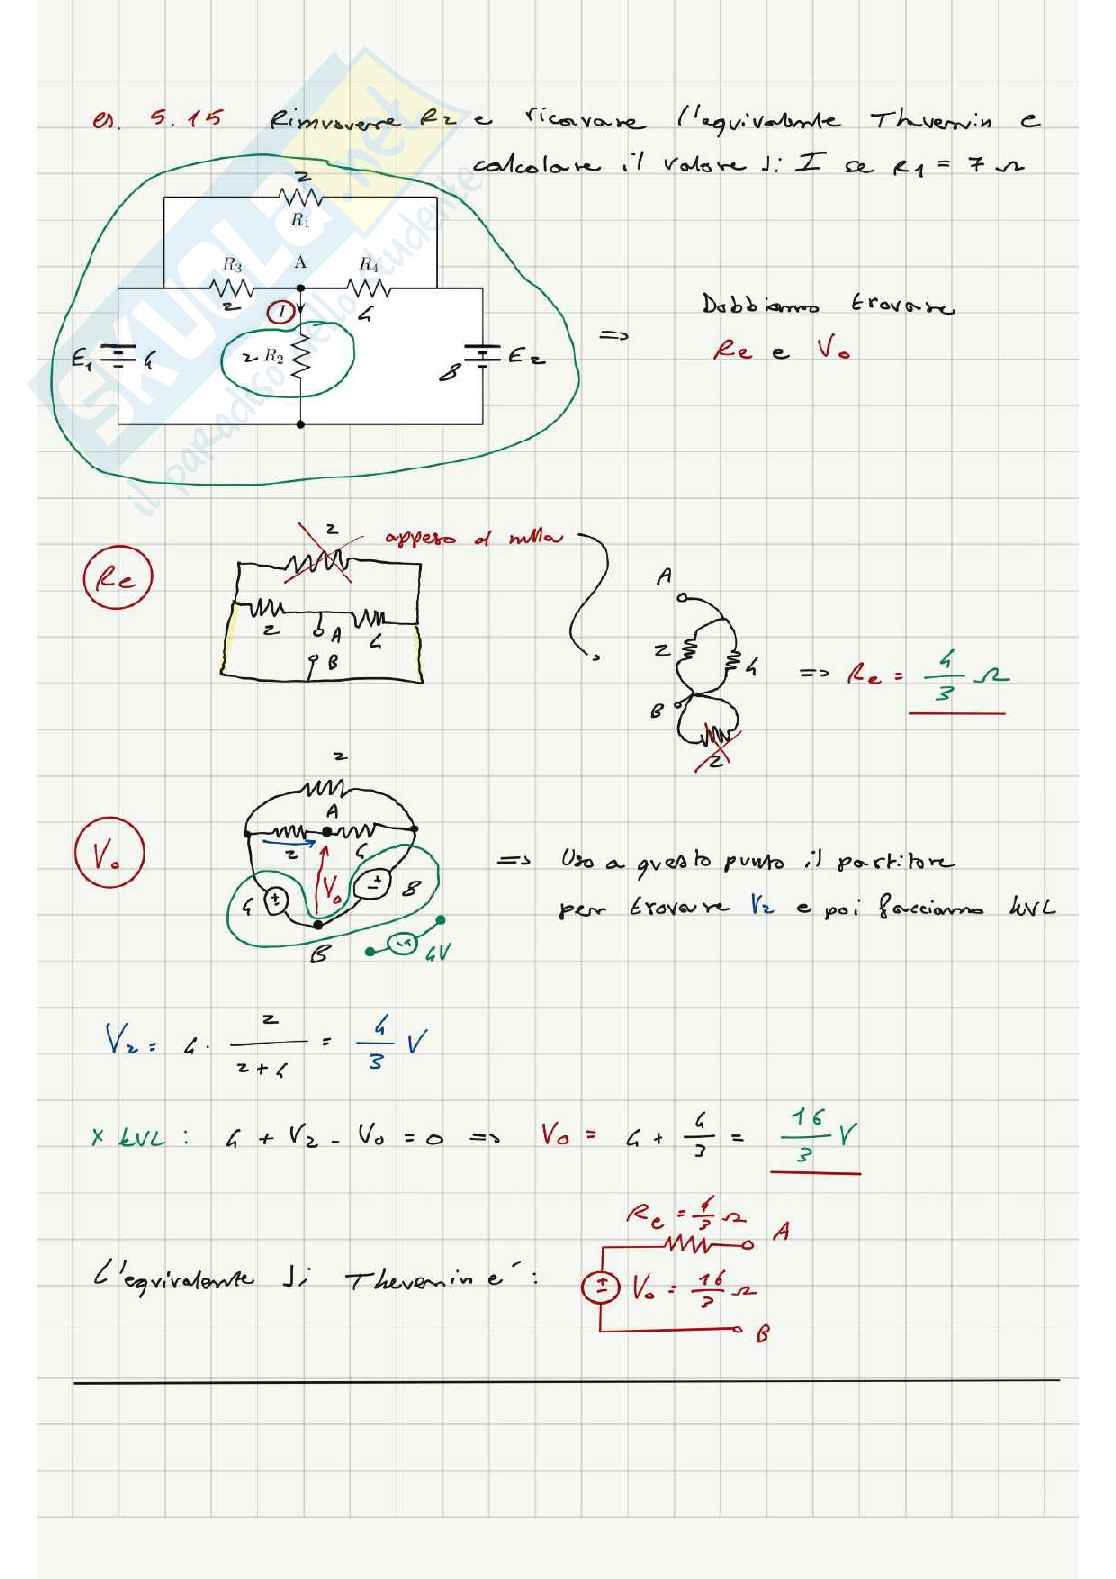 es. 5.15 Rimuovere R2 e ricavare l'equivalente Thevenin e
calcolare il valore di I se R1 = 7 Ω
2
R1
R3 A R4
2 I 4
E1 4 2 R2 8 E2
=> Dobbiamo trovare
Re e V0
SKUOLA.net
il paradiso dello studente
Re
2 appeso al nulla
2 A 4
B
A
2 4
B
2
=> Re = 4/3 Ω
V0
2
A
2 4
4 V0 8
B 4V
=> Uso a questo punto il partitore
per trovare V2 e poi facciamo KVL
V2 = 4 · 2/(2+4) = 4/3 V
x KVL : 4 + V2 - V0 = 0 => V0 = 4 + 4/3 = 16/3 V
L'equivalente di Thevenin e' :
Re = 4/3 Ω A
V0 = 16/3 Ω
B